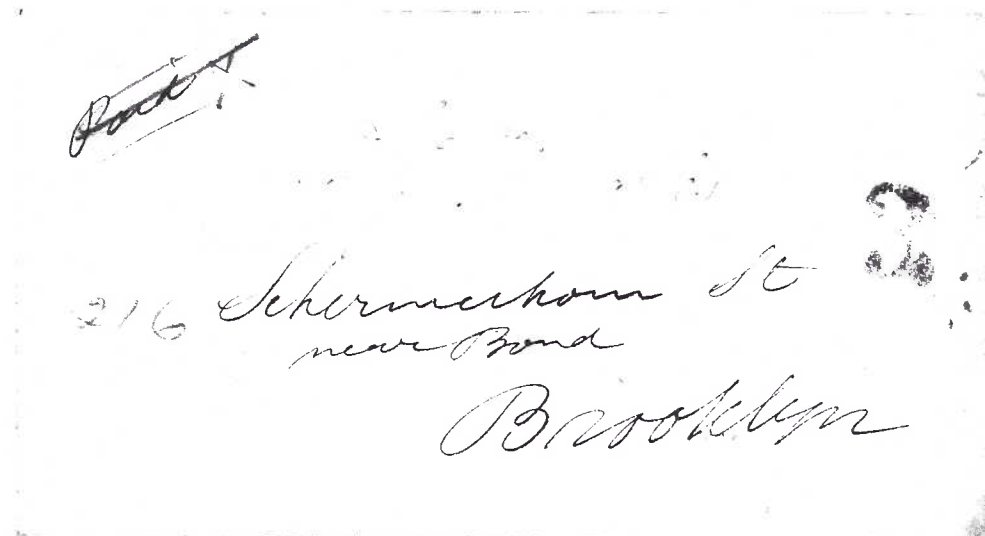 Paid
216 Schermerhorn St
near Bond
Brooklyn